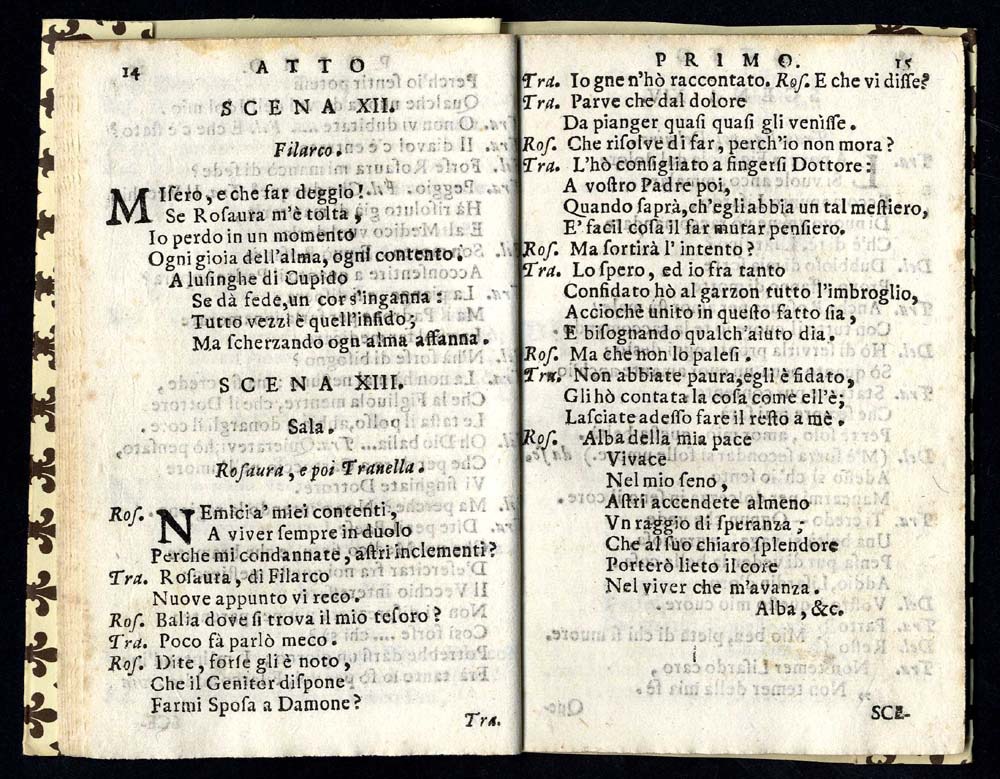 14 ATTO
SCENA XII.
Filarco.
MIsero, e che far deggio!
Se Rosaura m'è tolta,
Io perdo in un momento
Ogni gioia dell'alma, ogni contento.
A lusinghe di Cupido
Se dà fede, un cor s'inganna:
Tutto vezzi è quell'infido;
Ma scherzando ogn alma affanna.
SCENA XIII.
Sala.
Rosaura, e poi Tranella.
Ros. NEmici a' miei contenti,
A viver sempre in duolo
Perche mi condannate, astri inclementi?
Tra. Rosaura, di Filarco
Nuove appunto vi reco.
Ros. Balia dove si trova il mio tesoro?
Tra. Poco fà parlò meco.
Ros. Dite, forse gli è noto,
Che il Genitor dispone
Farmi Sposa a Damone?
Tra.
PRIMO. 15
Tra. Io gne n'hò raccontato. Ros. E che vi disse?
Tra. Parve che dal dolore
Da pianger quasi quasi gli venisse.
Ros. Che risolve di far, perch'io non mora?
Tra. L'hò consigliato a fingersi Dottore:
A vostro Padre poi,
Quando saprà, ch'egli abbia un tal mestiero,
E' facil cosa il far mutar pensiero.
Ros. Ma sortirà l'intento?
Tra. Lo spero, ed io fra tanto
Confidato hò al garzon tutto l'imbroglio,
Acciochè unito in questo fatto sia,
E bisognando qualch'aiuto dia.
Ros. Ma che non lo palesi.
Tra. Non abbiate paura, egli è fidato,
Gli hò contata la cosa come ell'è;
Lasciate adesso fare il resto a mè.
Ros. Alba della mia pace
Vivace
Nel mio seno,
Astri accendete almeno
Vn raggio di speranza;
Che al suo chiaro splendore
Porterò lieto il core
Nel viver che m'avanza.
Alba, &c.
SCE-